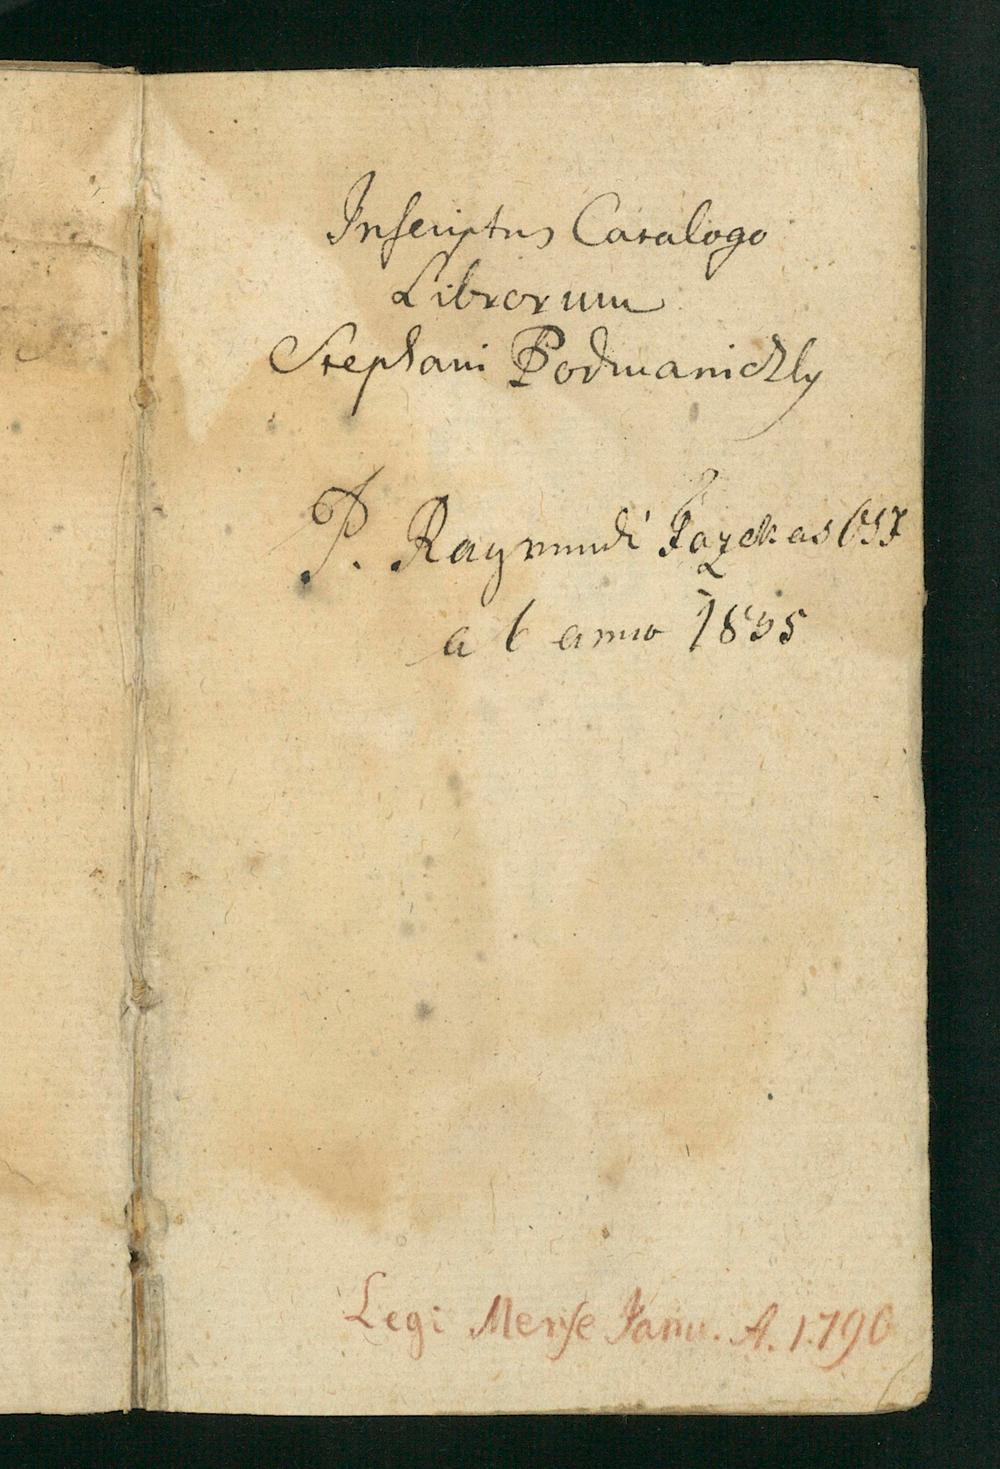 Inscriptus Catalogo
Librorum
Stephani Podmaniczky
P. Raymundi Fazekas
ab anno 1835
Legi Mense Janu. A. 1790